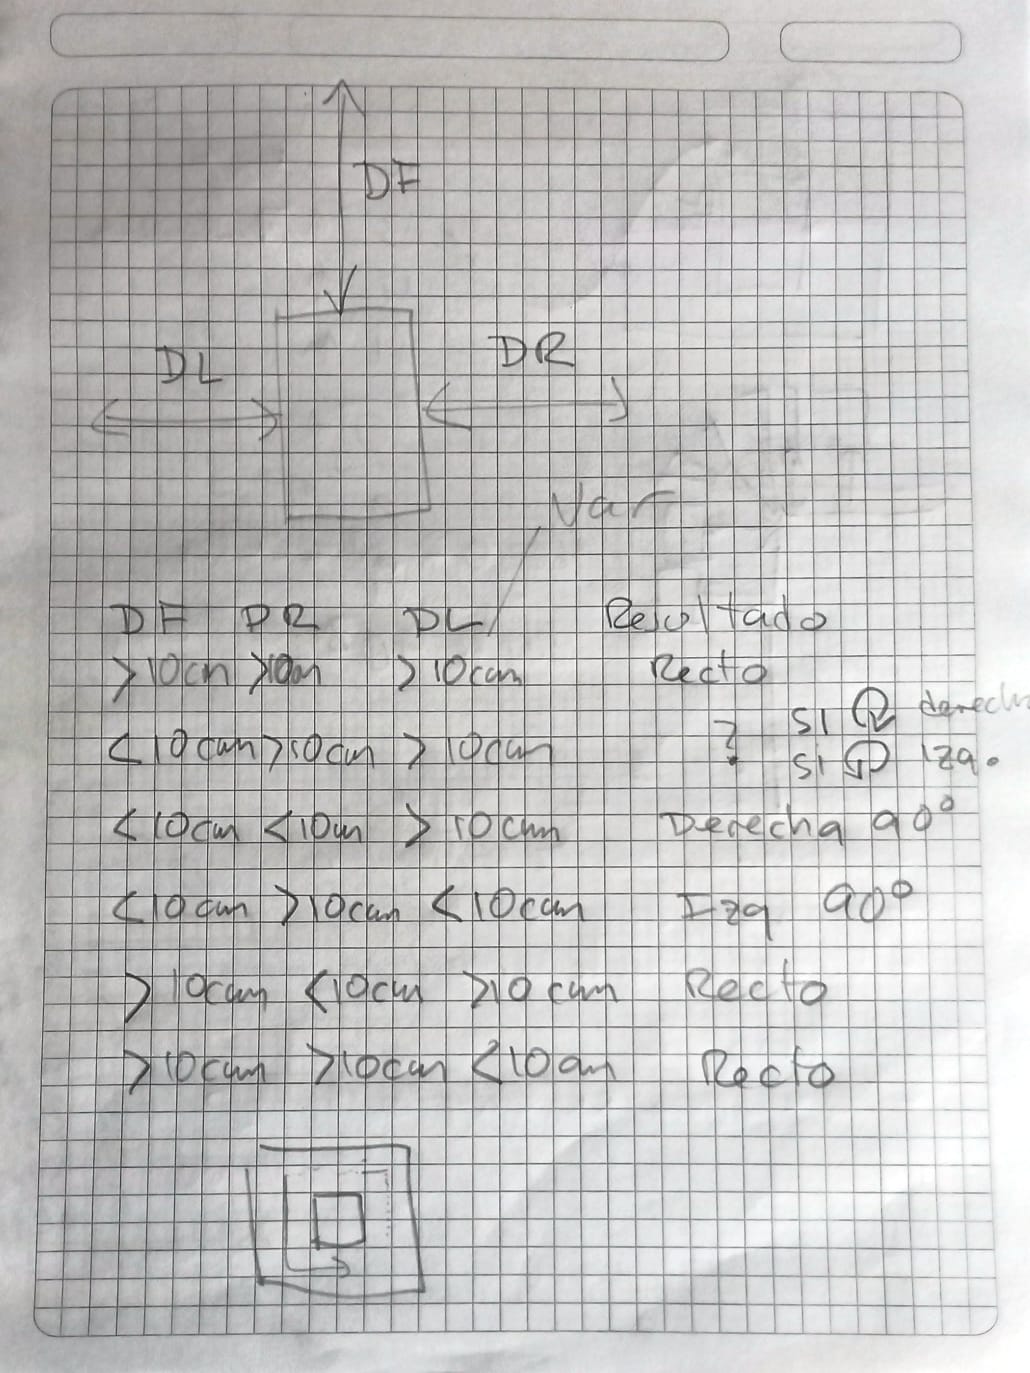 DF
DL
DR
Var
DF DR DL Resultado
>10cm >10m >10cm Recto
<10cm >10cm >10cm ? si derecha
si Izq.
<10cm <10cm >10cm Derecha 90°
<10cm >10cm <10cm Izq 90°
>10cm <10cm >10cm Recto
>10cm >10cm <10cm Recto